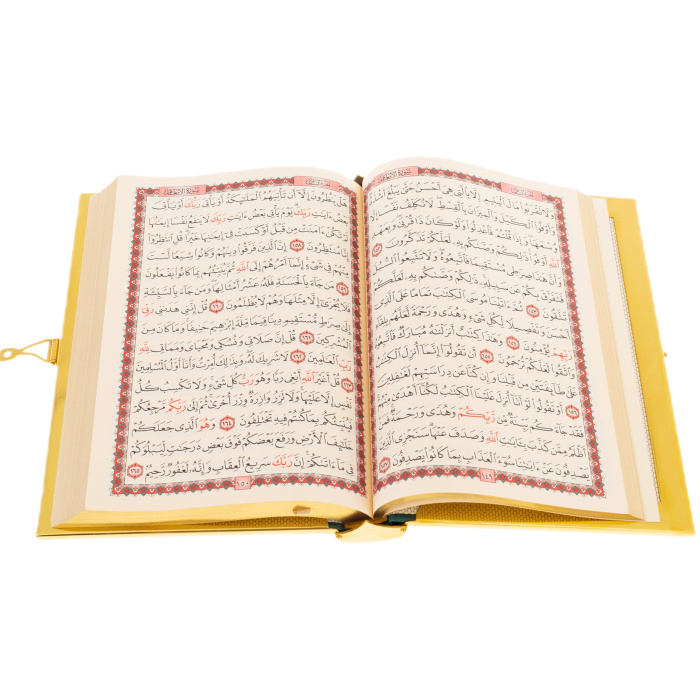 سُورَةُ الأَنْعَام
الجُزْءُ الثَّامِنُ
وَلَا تَقْرَبُوا۟ مَالَ ٱلْيَتِيمِ إِلَّا بِٱلَّتِى هِىَ أَحْسَنُ حَتَّىٰ يَبْلُغَ أَشُدَّهُۥ
وَأَوْفُوا۟ ٱلْكَيْلَ وَٱلْمِيزَانَ بِٱلْقِسْطِ لَا نُكَلِّفُ نَفْسًا إِلَّا
وُسْعَهَا وَإِذَا قُلْتُمْ فَٱعْدِلُوا۟ وَلَوْ كَانَ ذَا قُرْبَىٰ وَبِعَهْدِ
ٱللَّهِ أَوْفُوا۟ ذَٰلِكُمْ وَصَّىٰكُم بِهِۦ لَعَلَّكُمْ تَذَكَّرُونَ ١٥٢
وَأَنَّ هَٰذَا صِرَٰطِى مُسْتَقِيمًا فَٱتَّبِعُوهُ وَلَا تَتَّبِعُوا۟ ٱلسُّبُلَ
فَتَفَرَّقَ بِكُمْ عَن سَبِيلِهِۦ ذَٰلِكُمْ وَصَّىٰكُم بِهِۦ لَعَلَّكُمْ
تَتَّقُونَ ١٥٣ ثُمَّ ءَاتَيْنَا مُوسَى ٱلْكِتَٰبَ تَمَامًا عَلَى ٱلَّذِىٓ
أَحْسَنَ وَتَفْصِيلًا لِّكُلِّ شَىْءٍ وَهُدًى وَرَحْمَةً لَّعَلَّهُم بِلِقَآءِ
رَبِّهِمْ يُؤْمِنُونَ ١٥٤ وَهَٰذَا كِتَٰبٌ أَنزَلْنَٰهُ مُبَارَكٌ فَٱتَّبِعُوهُ
وَٱتَّقُوا۟ لَعَلَّكُمْ تُرْحَمُونَ ١٥٥ أَن تَقُولُوٓا۟ إِنَّمَآ أُنزِلَ ٱلْكِتَٰبُ
عَلَىٰ طَآئِفَتَيْنِ مِن قَبْلِنَا وَإِن كُنَّا عَن دِرَاسَتِهِمْ لَغَٰفِلِينَ ١٥٦
أَوْ تَقُولُوا۟ لَوْ أَنَّآ أُنزِلَ عَلَيْنَا ٱلْكِتَٰبُ لَكُنَّآ أَهْدَىٰ مِنْهُمْ
فَقَدْ جَآءَكُم بَيِّنَةٌ مِّن رَّبِّكُمْ وَهُدًى وَرَحْمَةٌ فَمَنْ
أَظْلَمُ مِمَّن كَذَّبَ بِـَٔايَٰتِ ٱللَّهِ وَصَدَفَ عَنْهَا سَنَجْزِى ٱلَّذِينَ
يَصْدِفُونَ عَنْ ءَايَٰتِنَا سُوٓءَ ٱلْعَذَابِ بِمَا كَانُوا۟ يَصْدِفُونَ ١٥٧
١٤٩
الجُزْءُ الثَّامِنُ
سُورَةُ الأَنْعَام
هَلْ يَنظُرُونَ إِلَّآ أَن تَأْتِيَهُمُ ٱلْمَلَٰٓئِكَةُ أَوْ يَأْتِىَ رَبُّكَ أَوْ يَأْتِىَ
بَعْضُ ءَايَٰتِ رَبِّكَ يَوْمَ يَأْتِى بَعْضُ ءَايَٰتِ رَبِّكَ لَا يَنفَعُ نَفْسًا إِيمَٰنُهَا لَمْ
تَكُنْ ءَامَنَتْ مِن قَبْلُ أَوْ كَسَبَتْ فِىٓ إِيمَٰنِهَا خَيْرًا قُلِ ٱنتَظِرُوٓا۟
إِنَّا مُنتَظِرُونَ ١٥٨ إِنَّ ٱلَّذِينَ فَرَّقُوا۟ دِينَهُمْ وَكَانُوا۟ شِيَعًا لَّسْتَ
مِنْهُمْ فِى شَىْءٍ إِنَّمَآ أَمْرُهُمْ إِلَى ٱللَّهِ ثُمَّ يُنَبِّئُهُم بِمَا كَانُوا۟ يَفْعَلُونَ
١٥٩ مَن جَآءَ بِٱلْحَسَنَةِ فَلَهُۥ عَشْرُ أَمْثَالِهَا وَمَن جَآءَ بِٱلسَّيِّئَةِ
فَلَا يُجْزَىٰٓ إِلَّا مِثْلَهَا وَهُمْ لَا يُظْلَمُونَ ١٦٠ قُلْ إِنَّنِى هَدَىٰنِى رَبِّىٓ
إِلَىٰ صِرَٰطٍ مُّسْتَقِيمٍ دِينًا قِيَمًا مِّلَّةَ إِبْرَٰهِيمَ حَنِيفًا وَمَا كَانَ مِنَ
ٱلْمُشْرِكِينَ ١٦١ قُلْ إِنَّ صَلَاتِى وَنُسُكِى وَمَحْيَاىَ وَمَمَاتِى لِلَّهِ
رَبِّ ٱلْعَٰلَمِينَ ١٦٢ لَا شَرِيكَ لَهُۥ وَبِذَٰلِكَ أُمِرْتُ وَأَنَا۠ أَوَّلُ ٱلْمُسْلِمِينَ
١٦٣ قُلْ أَغَيْرَ ٱللَّهِ أَبْغِى رَبًّا وَهُوَ رَبُّ كُلِّ شَىْءٍ وَلَا تَكْسِبُ كُلُّ
نَفْسٍ إِلَّا عَلَيْهَا وَلَا تَزِرُ وَازِرَةٌ وِزْرَ أُخْرَىٰ ثُمَّ إِلَىٰ رَبِّكُم مَّرْجِعُكُمْ
فَيُنَبِّئُكُم بِمَا كُنتُمْ فِيهِ تَخْتَلِفُونَ ١٦٤ وَهُوَ ٱلَّذِى جَعَلَكُمْ
خَلَٰٓئِفَ ٱلْأَرْضِ وَرَفَعَ بَعْضَكُمْ فَوْقَ بَعْضٍ دَرَجَٰتٍ لِّيَبْلُوَكُمْ
فِى مَآ ءَاتَىٰكُمْ إِنَّ رَبَّكَ سَرِيعُ ٱلْعِقَابِ وَإِنَّهُۥ لَغَفُورٌ رَّحِيمٌ ١٦٥
١٥٠